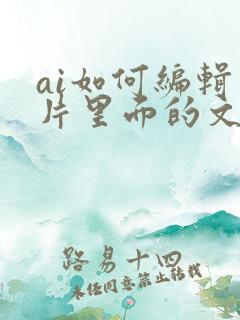 ai如何编辑
片里面的文
路易十四
未经同意禁止转载